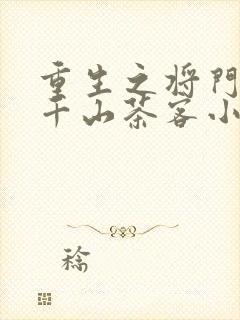 重生之将门
千山茶客小
稔